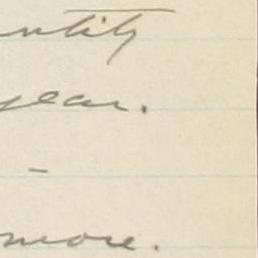 ntity
year.
-
more.